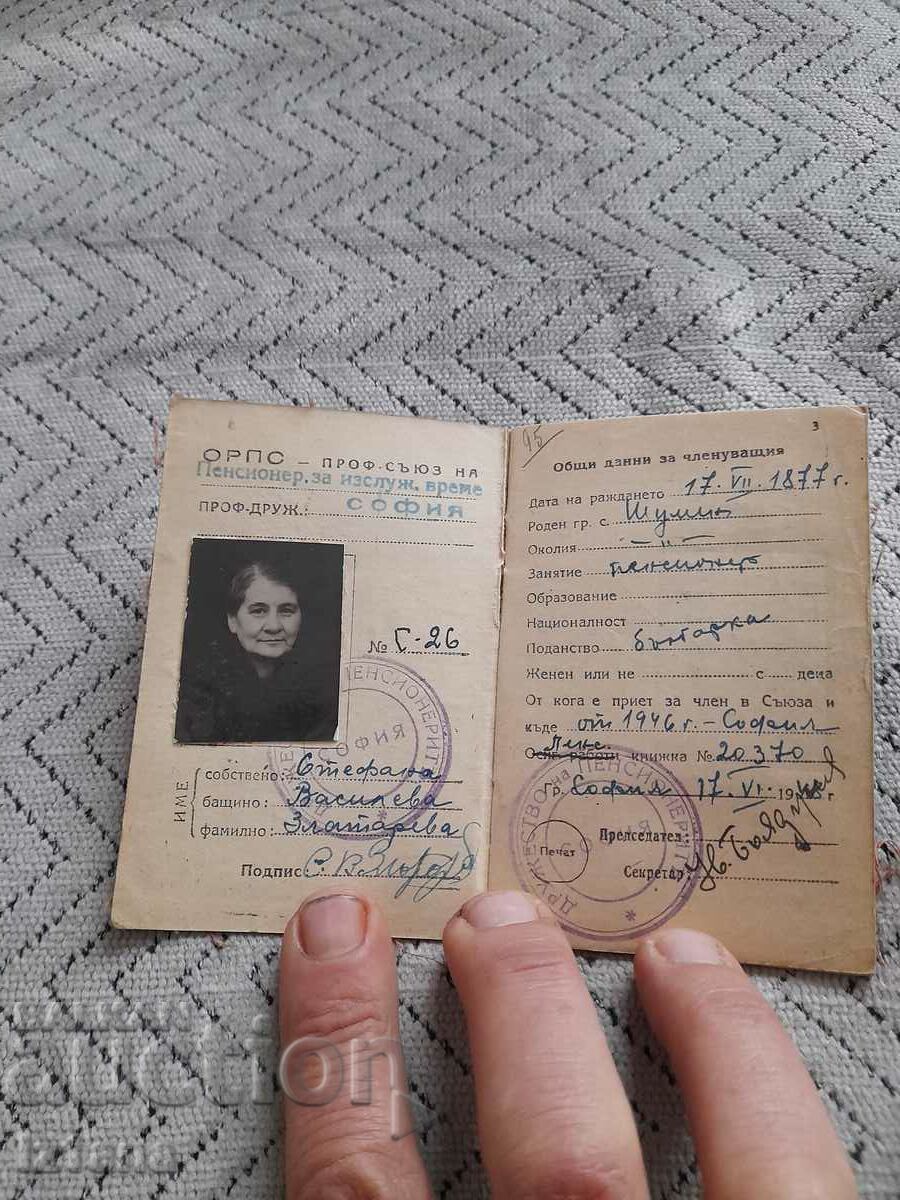 ОРПС – ПРОФ-СЪЮЗ НА
Пенсионер. за изслуж. време
ПРОФ-ДРУЖ.: СОФИЯ
№ С-26
ПЕНСИОНЕРИТЕ
СОФИЯ
ИМЕ
собствено: Стефана
бащино: Василева
фамилно: Златарева
Подпис:
95
3
Общи данни за членуващия
Дата на раждането 17. VII. 1877 г.
Роден гр. с. Шумен
Околия – " –
Занятие пенсионер
Образование
Националност
Поданство българка
Женен или не с деца
От кога е приет за член в Съюза и
къде от 1946 г. – София
Пенс.
Осиг. работн книжка № 20370
Гр. София 17. VI. 1948 г
Председател:
Печат
Секретар: Цв. Бояджиев
ДРУЖЕСТВО на ПЕНСИОНЕРИТЕ
СОФИЯ
auction